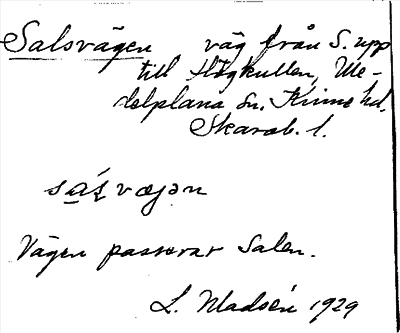 Salsvägen väg från S. upp
till Högkullen, Me-
delplana sn. Kinne hd.
Skarab. l.
vægən
Vägen passerar Salen.
L. Madsén 1929